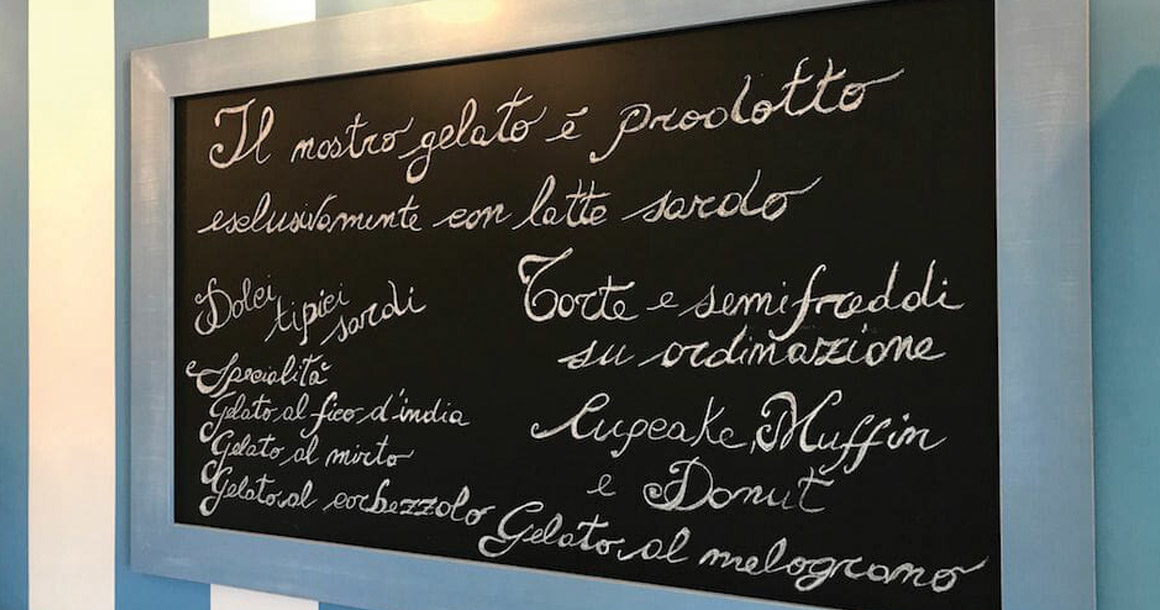 Il nostro gelato é prodotto
esclusivamente con latte sardo
Dolci tipici sardi
e Specialità
Gelato al fico d'india
Gelato al mirto
Gelato al corbezzolo
Torte e semifreddi
su ordinazione
Cupcake, Muffin
e Donut
Gelato al melograno